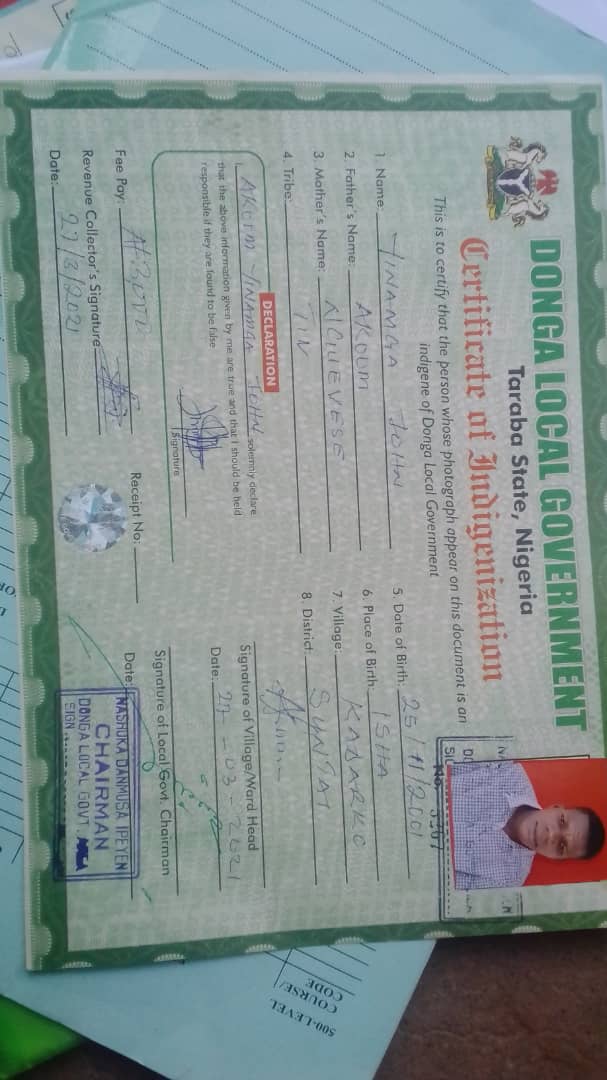 DONGA LOCAL GOVERNMENT
Taraba State, Nigeria
Certificate of Indigenization
This is to certify that the person whose photograph appear on this document is an
indigene of Donga Local Government
1. Name: YINAMGA JOHN
2. Father's Name: AKOOM
3. Mother's Name: NGUEVESE
4. Tribe: TIV
5. Date of Birth: 25/11/2001
6. Place of Birth: ISHA
7. Village: KADARKO
8. District: SUNTAI
DECLARATION
I, AKOOM YINAMGA JOHN solemnly declare
that the above information given by me are true and that I should be held
responsible if they are found to be false
Signature
Signature of Village/Ward Head
Date: 27-03-2021
Fee Pay:
Receipt No:
Revenue Collector's Signature
Date: 27/3/2021
Signature of Local Govt. Chairman
Date:
NASHUKA DANMUSA IPEYEN
CHAIRMAN
DONGA LOCAL GOVT.
SIGN
500-LEVEL
COURSE/
CODE